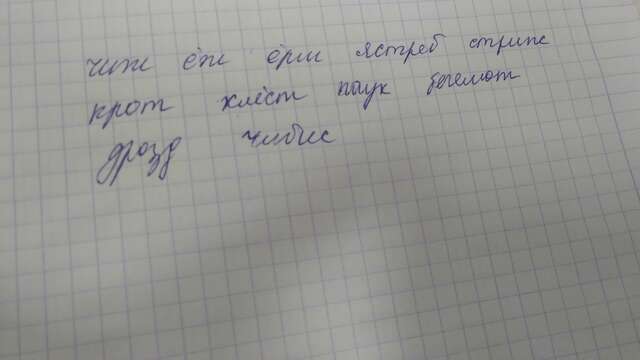 чиж ёж ёрш ястреб стриж
крот хлёст паук бегемот
дрозд чибис